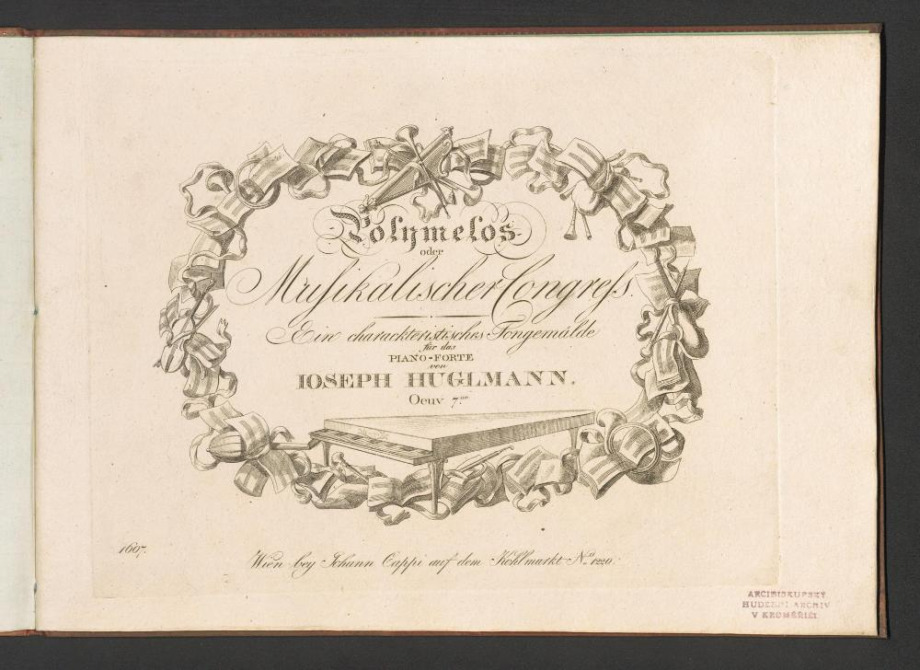 Polymelos
oder
Musikalischer Congreſs.
Ein charackteristisches Tongemälde
für das
PIANO-FORTE
von
IOSEPH HUGLMANN.
Oeuv 7.
1607.
Wien bey Johann Cappi auf dem Kohlmarkt Nº 1220.
ARCIBISKUPSKÝ
HUDEBNÍ ARCHIV
V KROMĚŘÍŽI